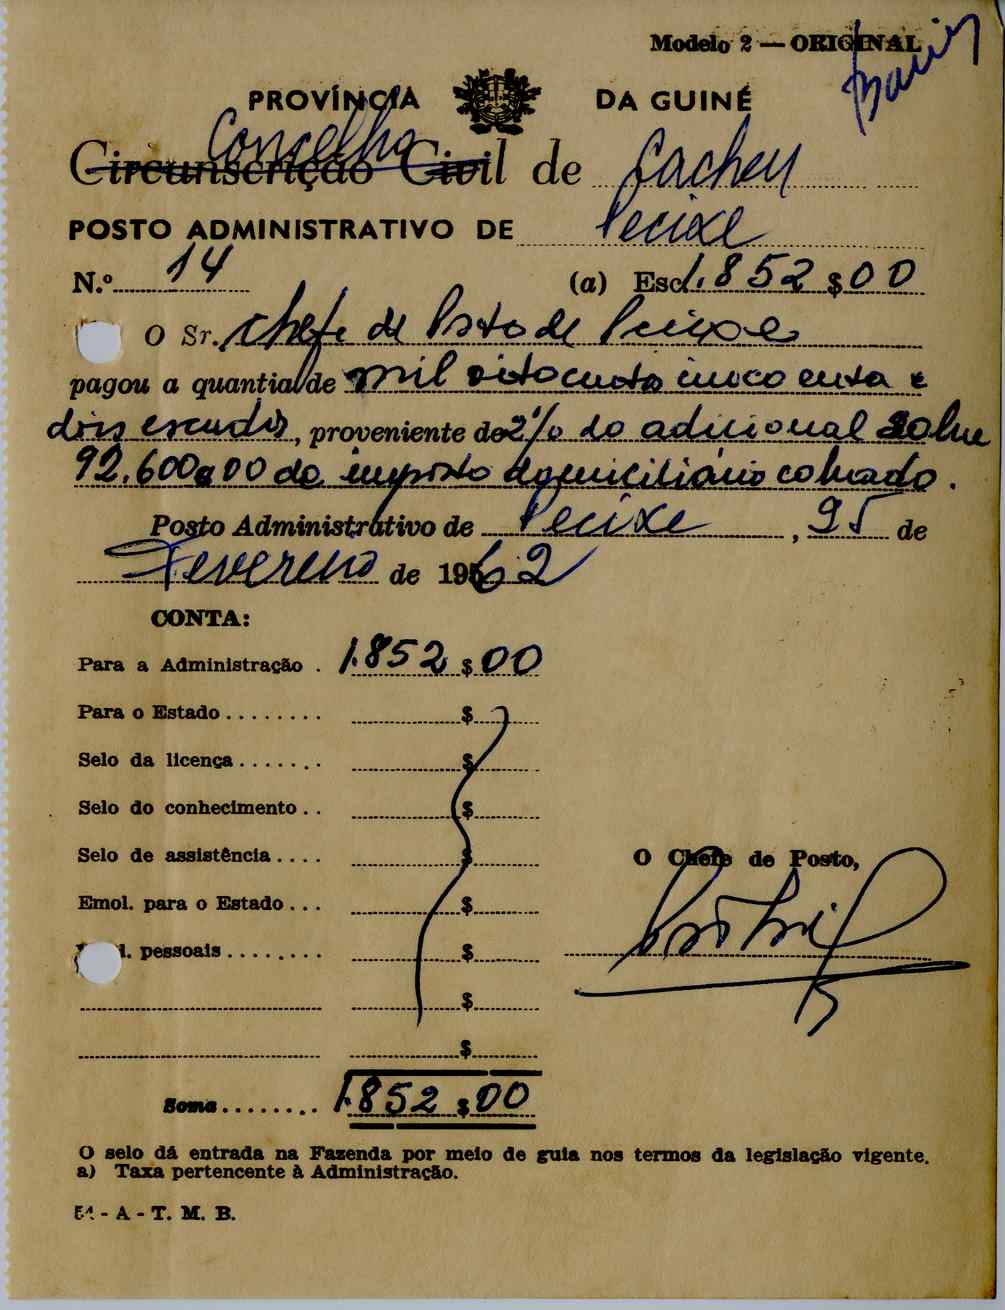 Modelo 2 — ORIGINAL
PROVÍNCIA DA GUINÉ
Concelho
Circunscrição Civil de Cacheu
POSTO ADMINISTRATIVO DE Pecixe
N.º 14 (a) Esc. 1.852 $ 00
O Sr. Chefe de Posto de Pecixe
pagou a quantia de mil oitocentos cinco enta e
dois escudos, proveniente de 2% do adicional sobre
92.600$00 do imposto domiciliário cobrado.
Posto Administrativo de Pecixe, 25 de
Fevereiro de 1962
CONTA:
Para a Administração . 1.852 $ 00
Para o Estado ........ $
Selo da licença ....... $
Selo do conhecimento .. $
Selo de assistência .... $
O Chefe de Posto,
Emol. para o Estado ... $
pessoais ........ $
$
$
Soma ........ 1.852 $ 00
O selo dá entrada na Fazenda por meio de guia nos termos da legislação vigente.
a) Taxa pertencente à Administração.
- A - T. M. B.